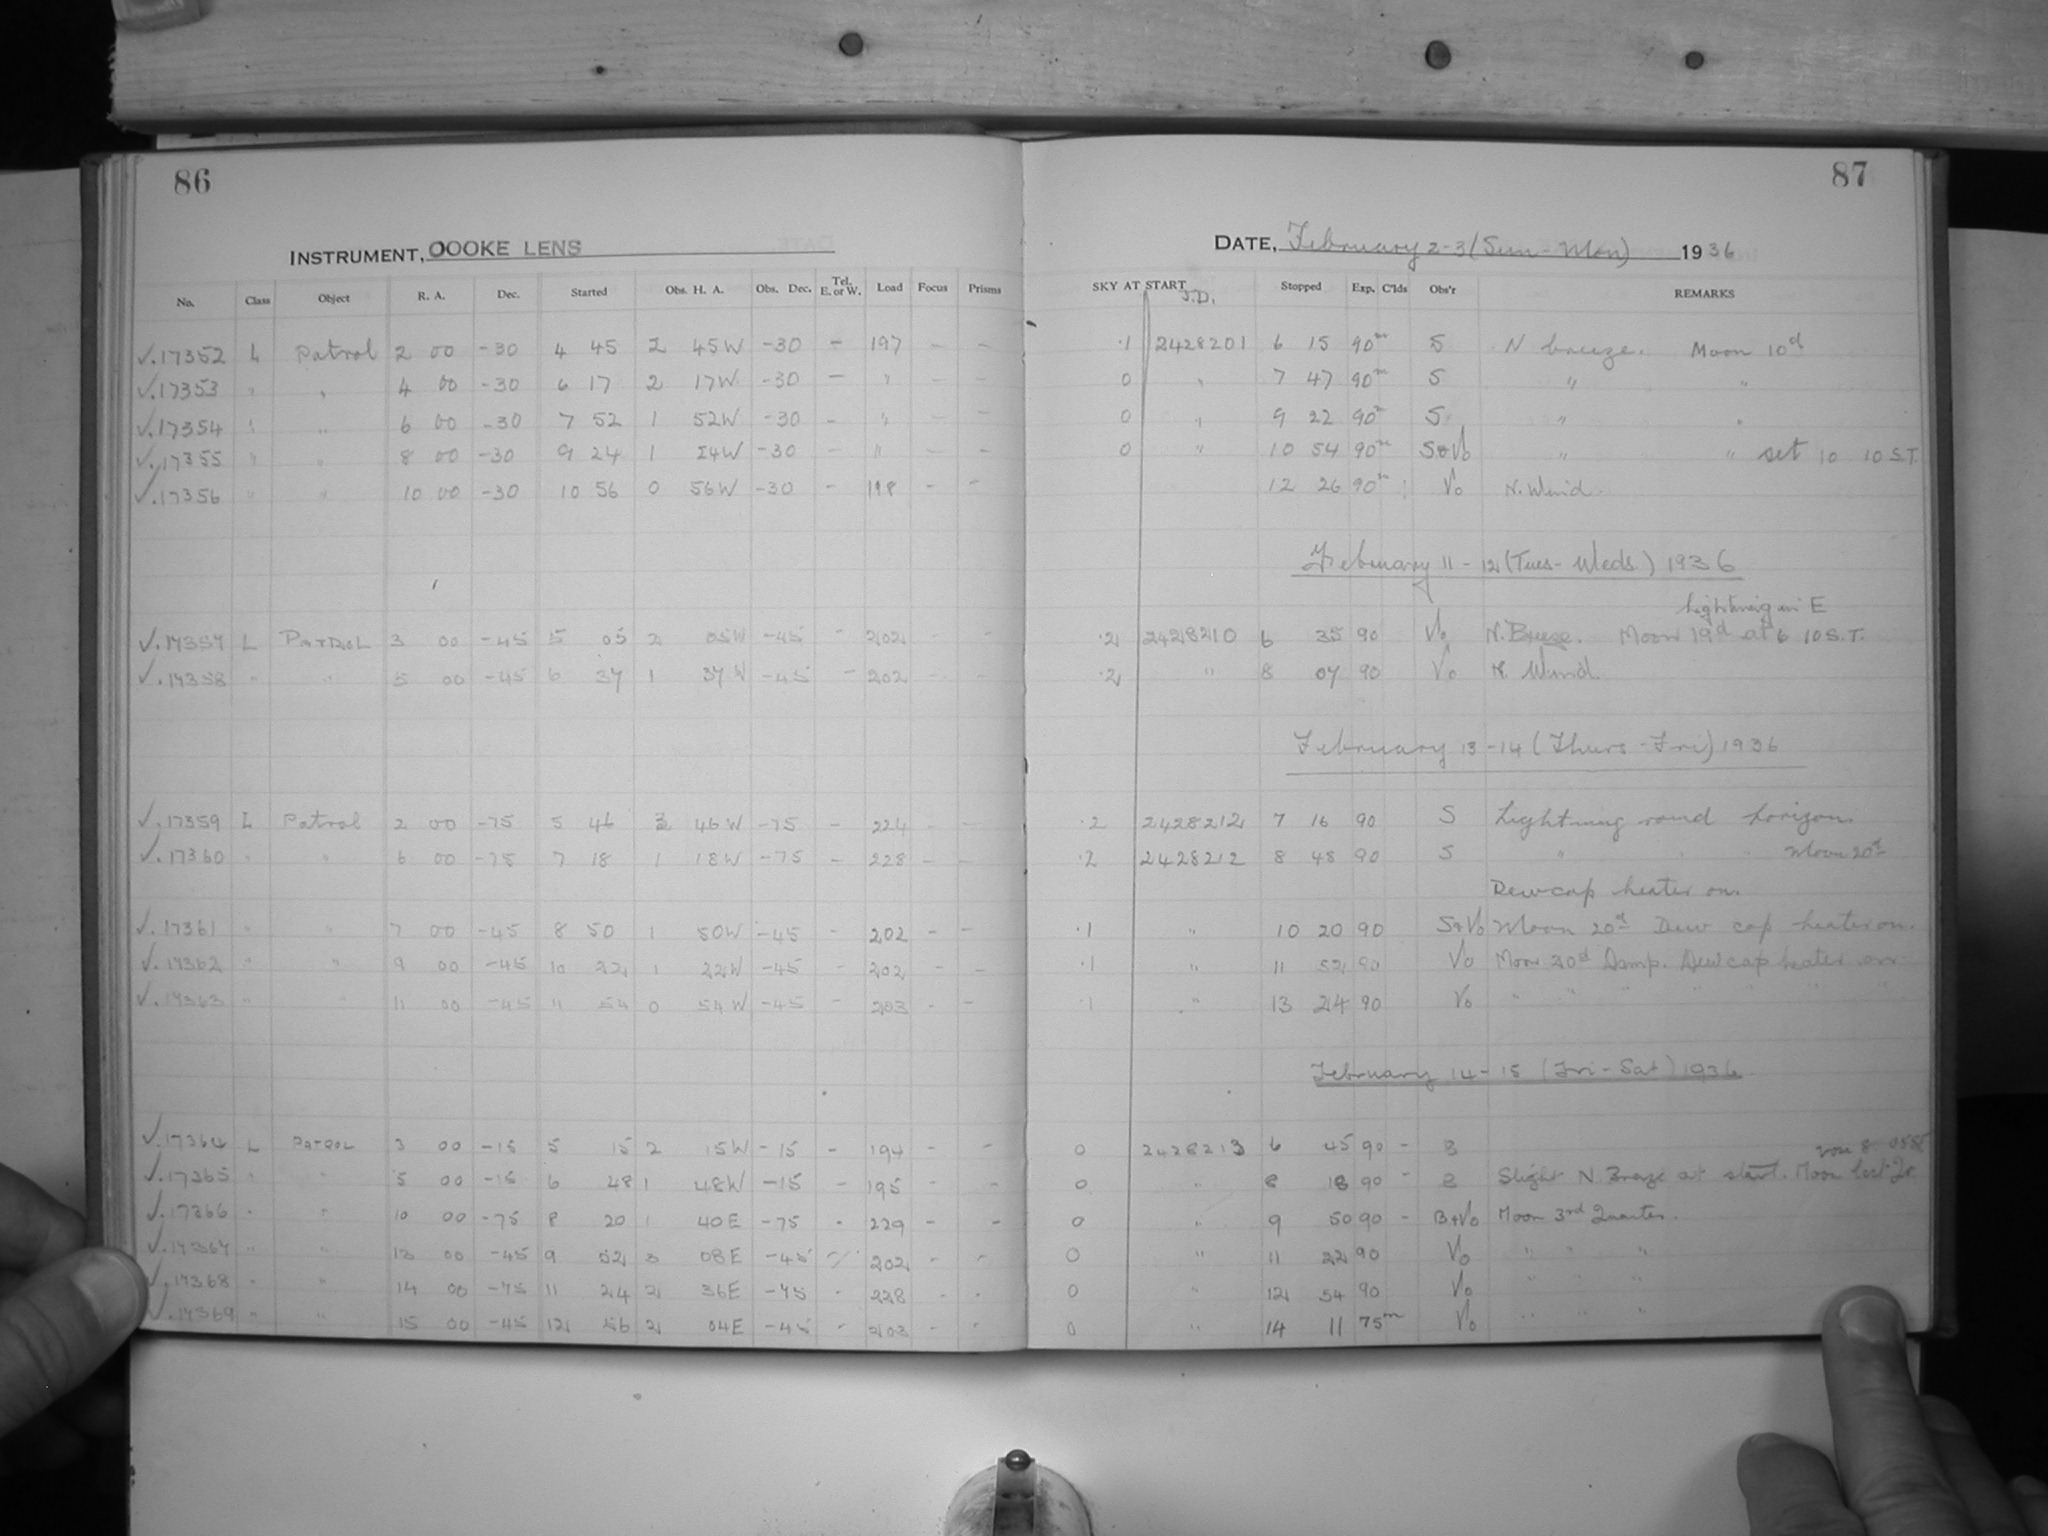 86
INSTRUMENT, OOOKE LENS
No. Class Object R. A. Dec. Started Obs. H. A. Obs. Dec. Tel. E. or W. Load Focus Prisms
√.17352 L Patrol 2 00 -30 4 45 2 45W -30 - 197 - -
√.17353 " " 4 00 -30 6 17 2 17W -30 - " - -
√.17354 " " 6 00 -30 7 52 1 52W -30 - " - -
√.17355 " " 8 00 -30 9 24 1 24W -30 - " - -
√.17356 " " 10 00 -30 10 56 0 56W -30 - 198 - -
√.17357 L PATROL 3 00 -45 5 05 2 05W -45 - 202 - -
√.17358 " " 5 00 -45 6 37 1 37W -45 - 202 - -
√.17359 L Patrol 2 00 -75 5 46 3 46W -75 - 224 - -
√.17360 " " 6 00 -75 7 18 1 18W -75 - 228 - -
√.17361 " " 7 00 -45 8 50 1 50W -45 - 202 - -
√.17362 " " 9 00 -45 10 22 1 22W -45 - 202 - -
√.17363 " " 11 00 -45 11 54 0 54W -45 - 203 - -
√.17364 L PATROL 3 00 -15 5 15 2 15W -15 - 194 - -
√.17365 " " 5 00 -15 6 48 1 48W -15 - 195 - -
√.17366 " " 10 00 -75 8 20 1 40E -75 - 229 - -
√.17367 " " 13 00 -45 9 52 3 08E -45 - 202 - -
√.17368 " " 14 00 -75 11 24 2 36E -75 - 228 - -
√.17369 " " 15 00 -45 12 56 2 04E -45 - 203 - -
87
DATE, February 2-3 (Sun-Mon) 1936
SKY AT START J.D. Stopped Exp. C'lds Obs'r REMARKS
.1 2428201 6 15 90m S N breeze. Moon 10d
0 " 7 47 90m S " "
0 " 9 22 90m S " "
0 " 10 54 90m S&Vo " " set 10 10 S.T.
12 26 90m Vo N. Wind.
February 11-12 (Tues-Weds.) 1936
Lightning in E
.2 2428210 6 35 90 Vo N. Breeze. Moon 19d at 6 10 S.T.
.2 " 8 07 90 Vo N. Wind.
February 13-14 (Thurs-Fri) 1936
.2 2428212 7 16 90 S Lightning round horizon.
.2 2428212 8 48 90 S " " " Moon 20d
Dewcap heater on.
.1 " 10 20 90 S&Vo Moon 20d Dew cap heater on.
.1 " 11 52 90 Vo Moon 20d Damp. Dewcap heater on
.1 " 13 24 90 Vo " " " " " "
February 14-15 (Fri-Sat) 1936
0 2428213 6 45 90 - B
0 " 8 18 90 - B Slight N Breeze at start. Moon last Qr
0 " 9 50 90 - B+Vo Moon 3rd Quarter.
0 " 11 22 90 Vo " " "
0 " 12 54 90 Vo " " "
0 " 14 11 75m Vo " " "